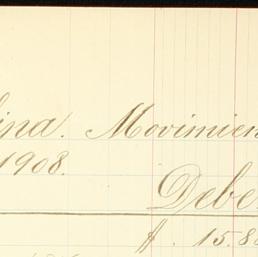 ina. Movimien
1908.
Debe
$. 15.8